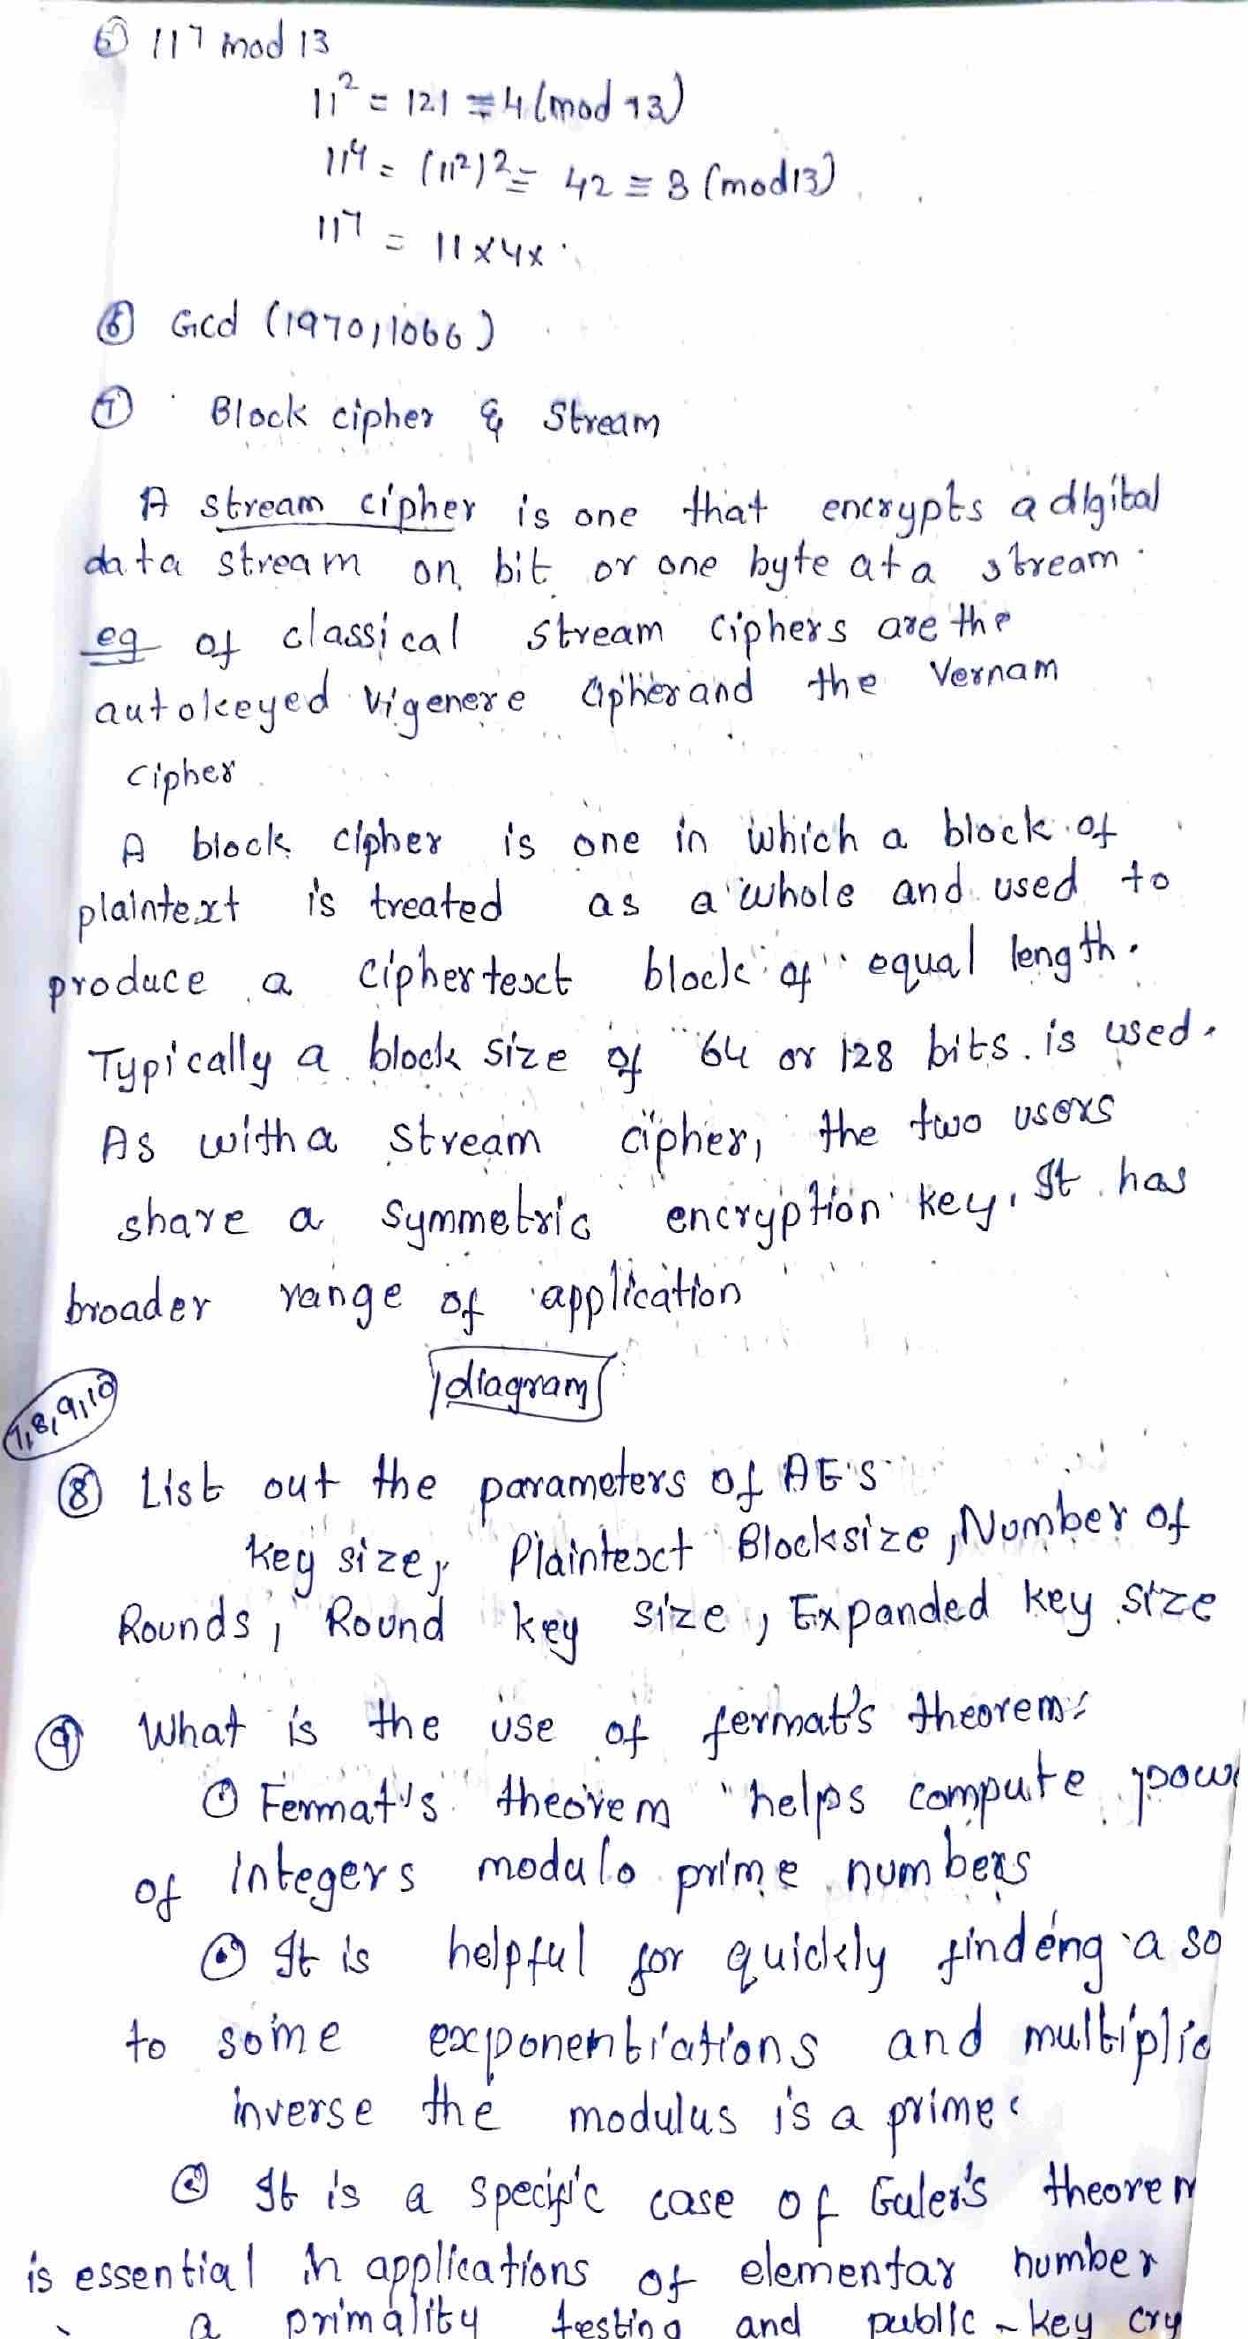 ⑤ 11⁷ mod 13
11² = 121 ≡ 4 (mod 13)
11⁴ = (11²)² = 42 ≡ 3 (mod 13)
11⁷ = 11x4x
⑥ Gcd (1970, 1066)
⑦ Block cipher & Stream
A stream cipher is one that encrypts a digital
data stream on bit or one byte at a stream.
eg of classical stream ciphers are the
autokeyed vigenere cipher and the Vernam
cipher
A block cipher is one in which a block of
plaintext is treated as a whole and used to
produce a ciphertext block of equal length.
Typically a block size of 64 or 128 bits. is used.
As with a stream cipher, the two users
share a symmetric encryption key. It has
broader range of application
diagram
7,8,9,10
⑧ List out the parameters of AES
key size, Plaintext Blocksize, Number of
Rounds, Round key size, Expanded key size
⑨ What is the use of fermat's theorem:
Fermat's theorem helps compute pow
of integers modulo prime numbers
It is helpful for quickly finding a so
to some exponentiations and multiplic
inverse the modulus is a prime
It is a specific case of Euler's theorem
is essential in applications of elementar number
a primality testing and public - key cry